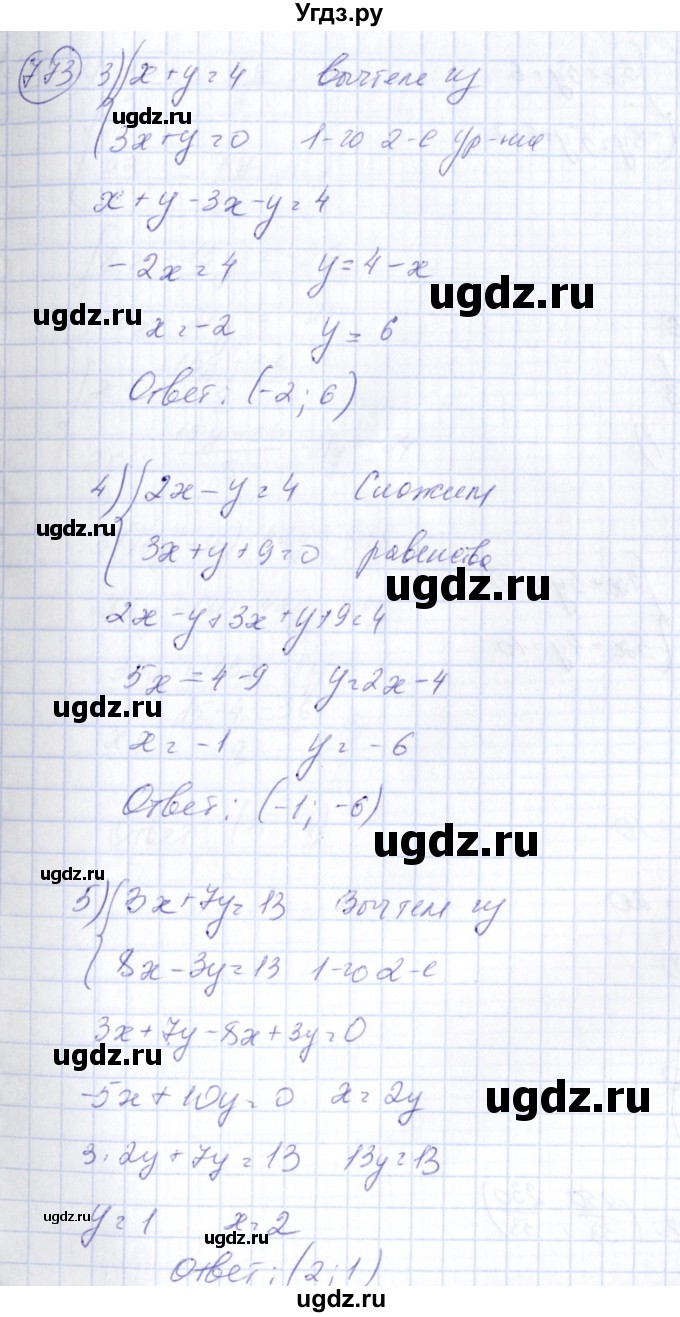 Угдз.ру
773 3) { x + y = 4 Вычтем из
3x + y = 0 1-го 2-е ур-ние
x + y - 3x - y = 4
-2x = 4 y = 4 - x
x = -2 y = 6
Ответ: (-2; 6)
4) { 2x - y = 4 Сложим
3x + y + 9 = 0 равенства
2x - y + 3x + y + 9 = 4
5x = 4 - 9 y = 2x - 4
x = -1 y = -6
Ответ: (-1; -6)
5) { 3x + 7y = 13 Вычтем из
8x - 3y = 13 1-го 2-е
3x + 7y - 8x + 3y = 0
-5x + 10y = 0 x = 2y
3 · 2y + 7y = 13 13y = 13
y = 1 x = 2
Ответ: (2; 1)
ugdz.ru
ugdz.ru
ugdz.ru
ugdz.ru
ugdz.ru
ugdz.ru
ugdz.ru
ugdz.ru
ugdz.ru
ugdz.ru
ugdz.ru
ugdz.ru
ugdz.ru